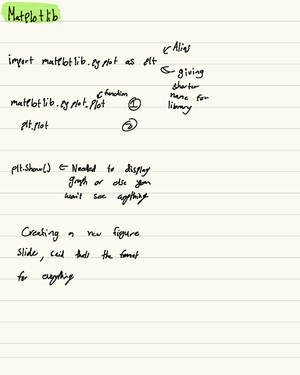 Matplotlib
Alias
import matplotlib.pyplot as plt
giving
shorter
name for
library
function
matplotlib.pyplot.plot 1
plt.plot 2
plt.show() ← Needed to display
graph or else you
won't see anything
Creating a new figure
slide, said that's the format
for everything